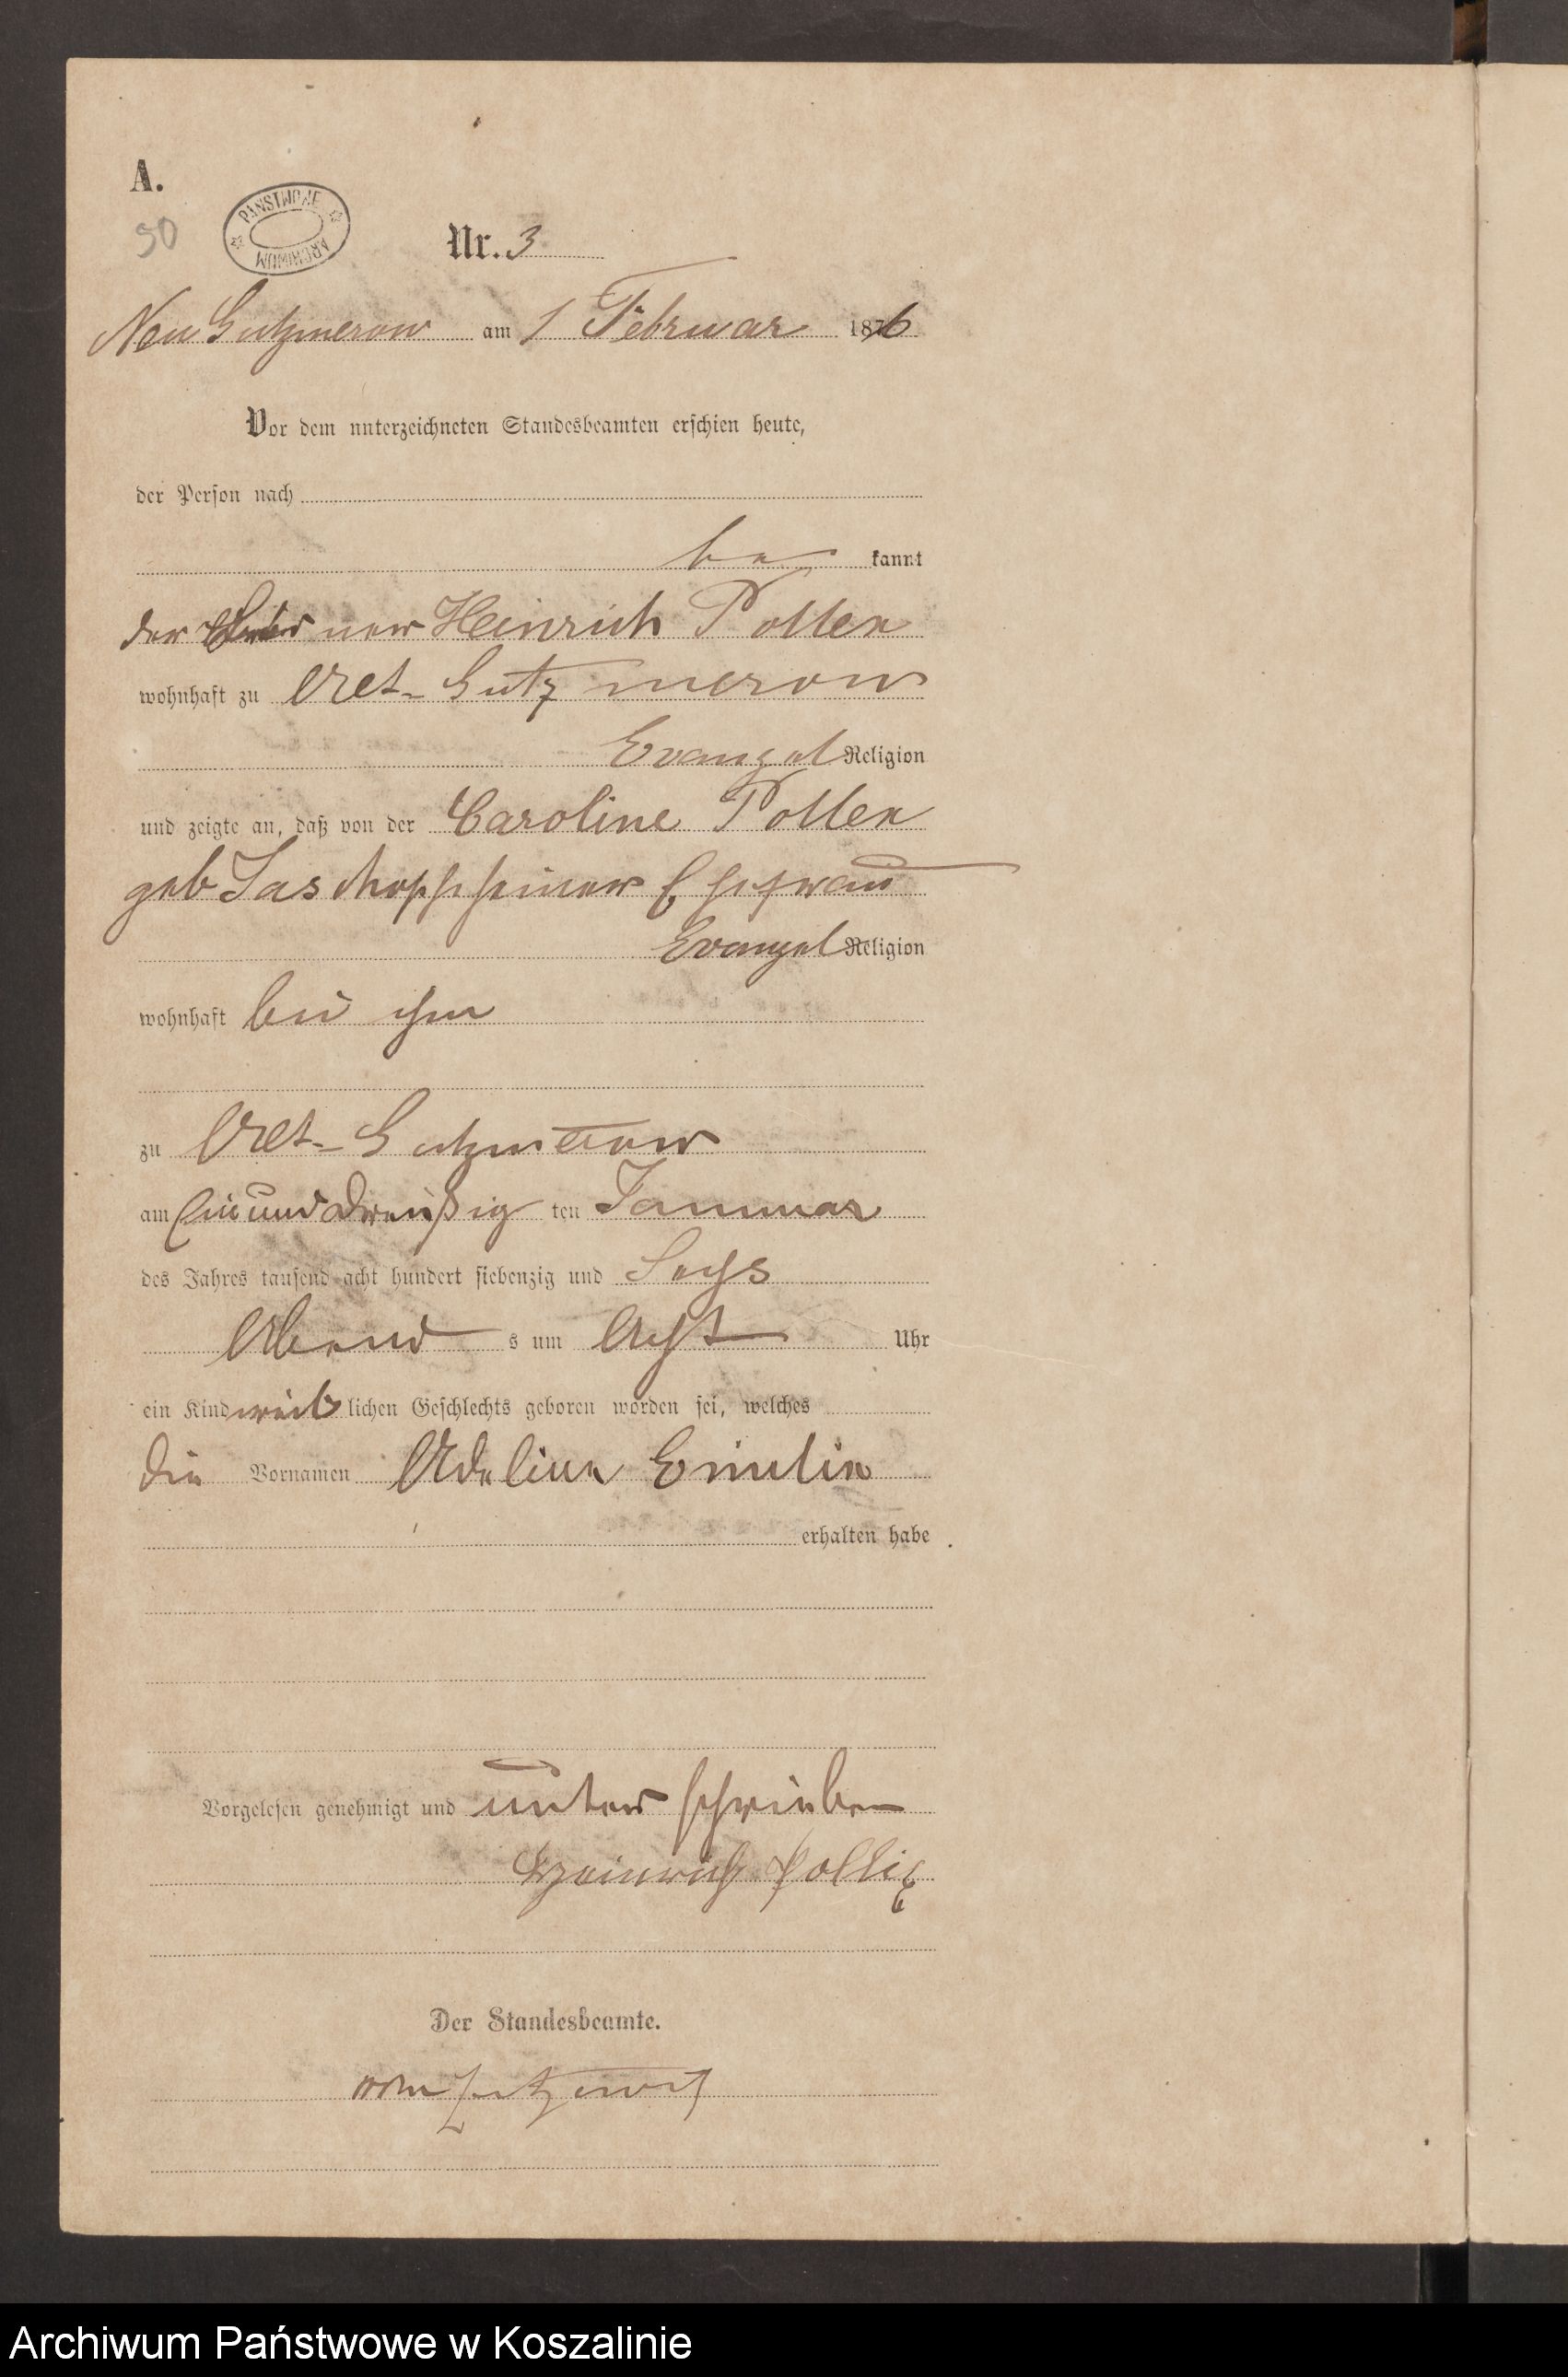 A.
50
PAŃSTWOWE ARCHIWUM
Nr. 3
Neu Gutzmerow am 1 Februar 1876
Vor dem unterzeichneten Standesbeamten erschien heute,
der Person nach
be kannt
der Heinrich Pollex
wohnhaft zu Alt-Gutzmerow
Evangel Religion
und zeigte an, daß von der Caroline Pollex
geb seiner Ehefrau
Evangel Religion
wohnhaft bei ihm
zu Alt-Gutzmerow
am Einunddreißig ten Januar
des Jahres tausend acht hundert siebenzig und Sechs
Abend s um Acht Uhr
ein Kind weib lichen Geschlechts geboren worden sei, welches
die Vornamen Adeline Emilie
erhalten habe.
Vorgelesen genehmigt und unterschrieben
Heinrich Pollex
Der Standesbeamte.
von Zitzewitz
Archiwum Państwowe w Koszalinie